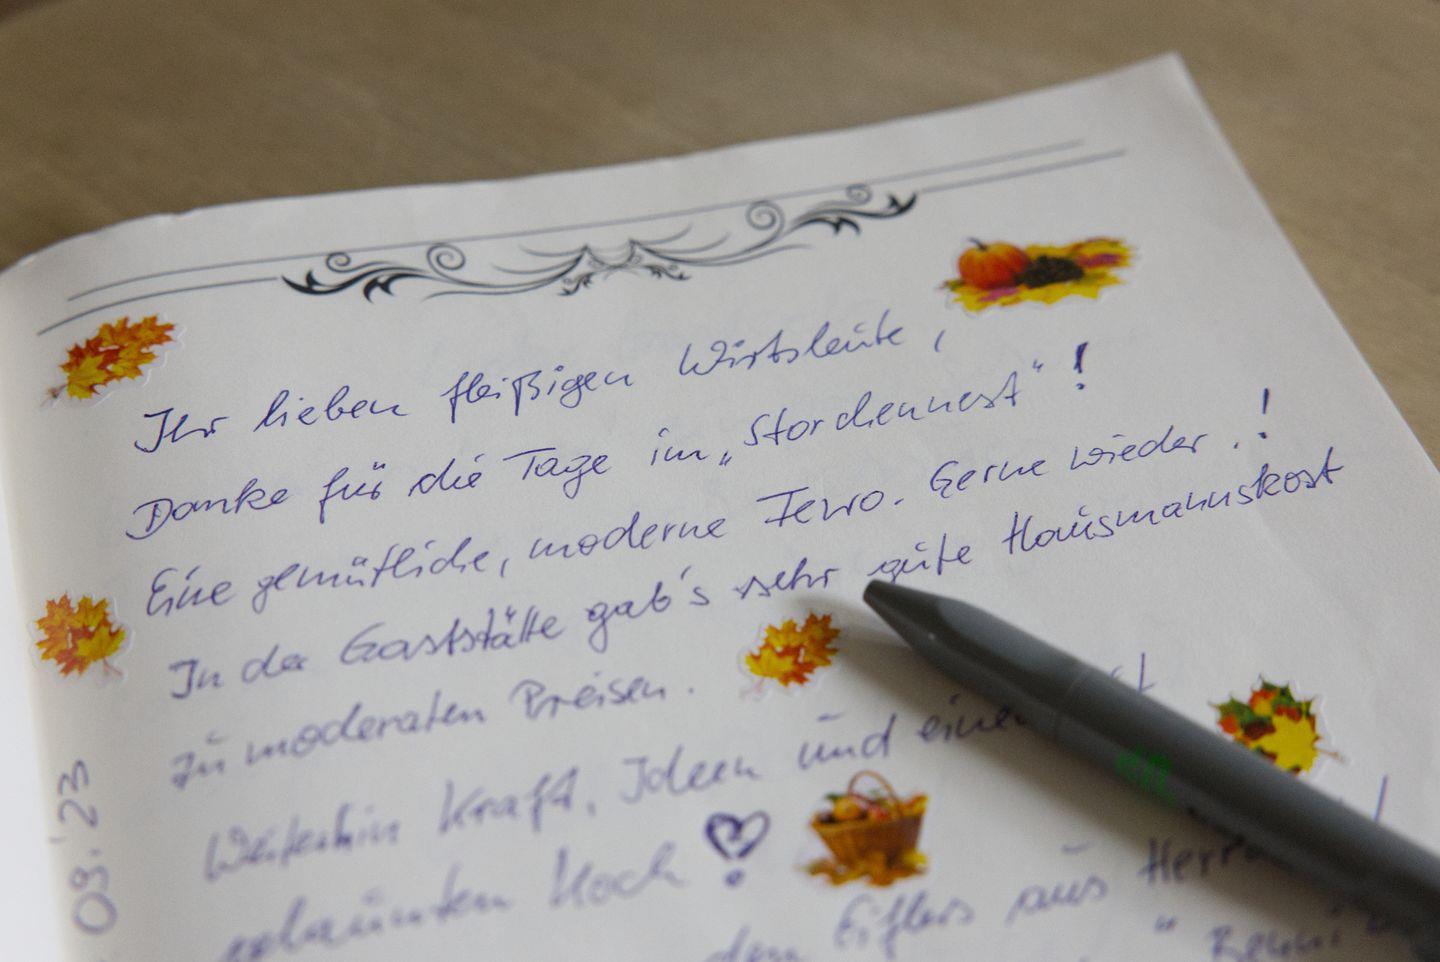 Ihr lieben fleißigen Wirtsleute,
Danke für die Tage im „Storchennest“!
Eine gemütliche, moderne Fewo. Gerne wieder.!
In der Gaststätte gab's sehr gute Hausmannskost
zu moderaten Preisen.
Weiterhin Kraft, Ideen und einen
gelaunten Koch!
den Eiflers aus
09.'23